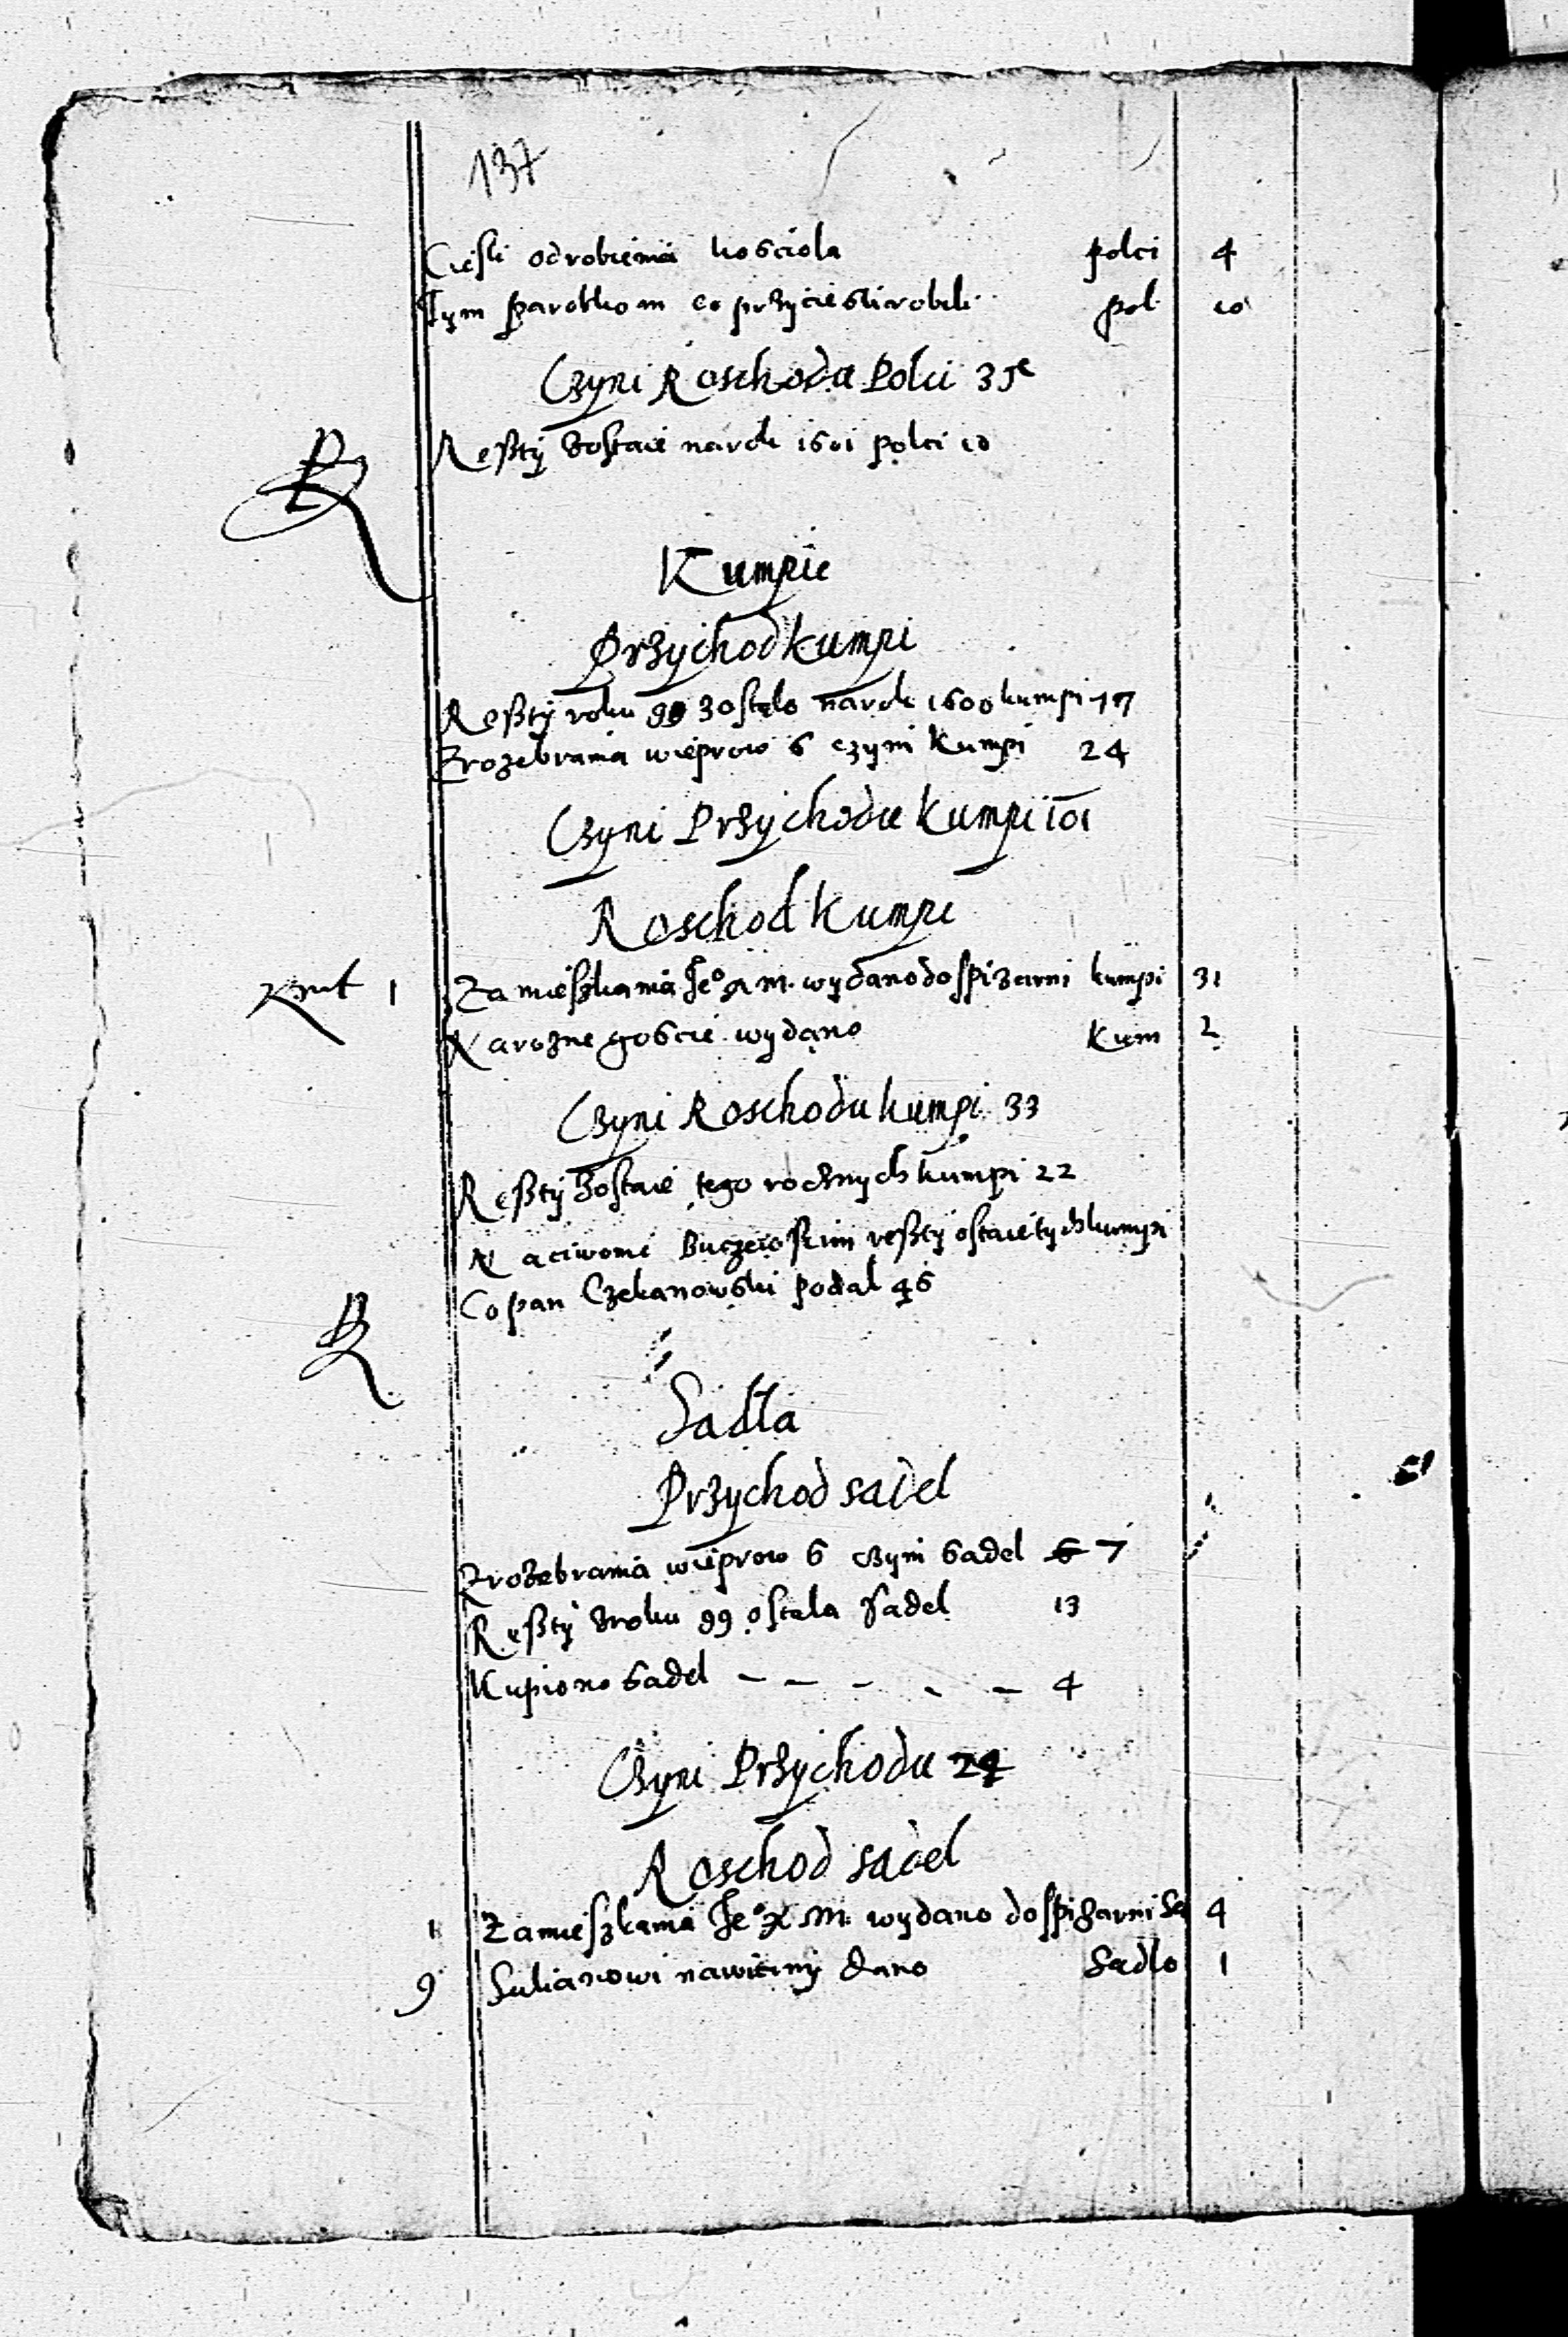 137
Ciesli od robienia kosciola polci 4
Tym parobkom co przy ciesli robili pol 10
Czyni Roschodu Polci 35
Reszty zostaie na rok 1601 polci 10
Kumpie
Przychod kumpi
Reszty roku 99 zostalo na rok 1600 kumpi 77
Z rozebrania wieprow 6 czyni kumpi 24
Czyni Przychodu kumpi 101
Roschod kumpi
1 Za mieszkania Je° X M. wydano do spizarni kumpi 31
Na rozne goscie wydano kum 2
Czyni Roschodu kumpi 33
Reszty zostaie tego rocznych kumpi 22
Na ciwonie Buczewskim reszty ostaie tych kumpi
Co pan Czekanowski podal 46
Sadła
Przychod sadel
Z rozebrania wieprow 6 czyni sadel 6 7
Reszty z roku 99 ostala sadel 13
Kupiono sadel – – – – – 4
Czyni Przychodu 24
Roschod sadel
1 Za mieszkania Je° X M. wydano do spizarni sa 4
9 Sulianowi na wiciny dano Sadlo 1